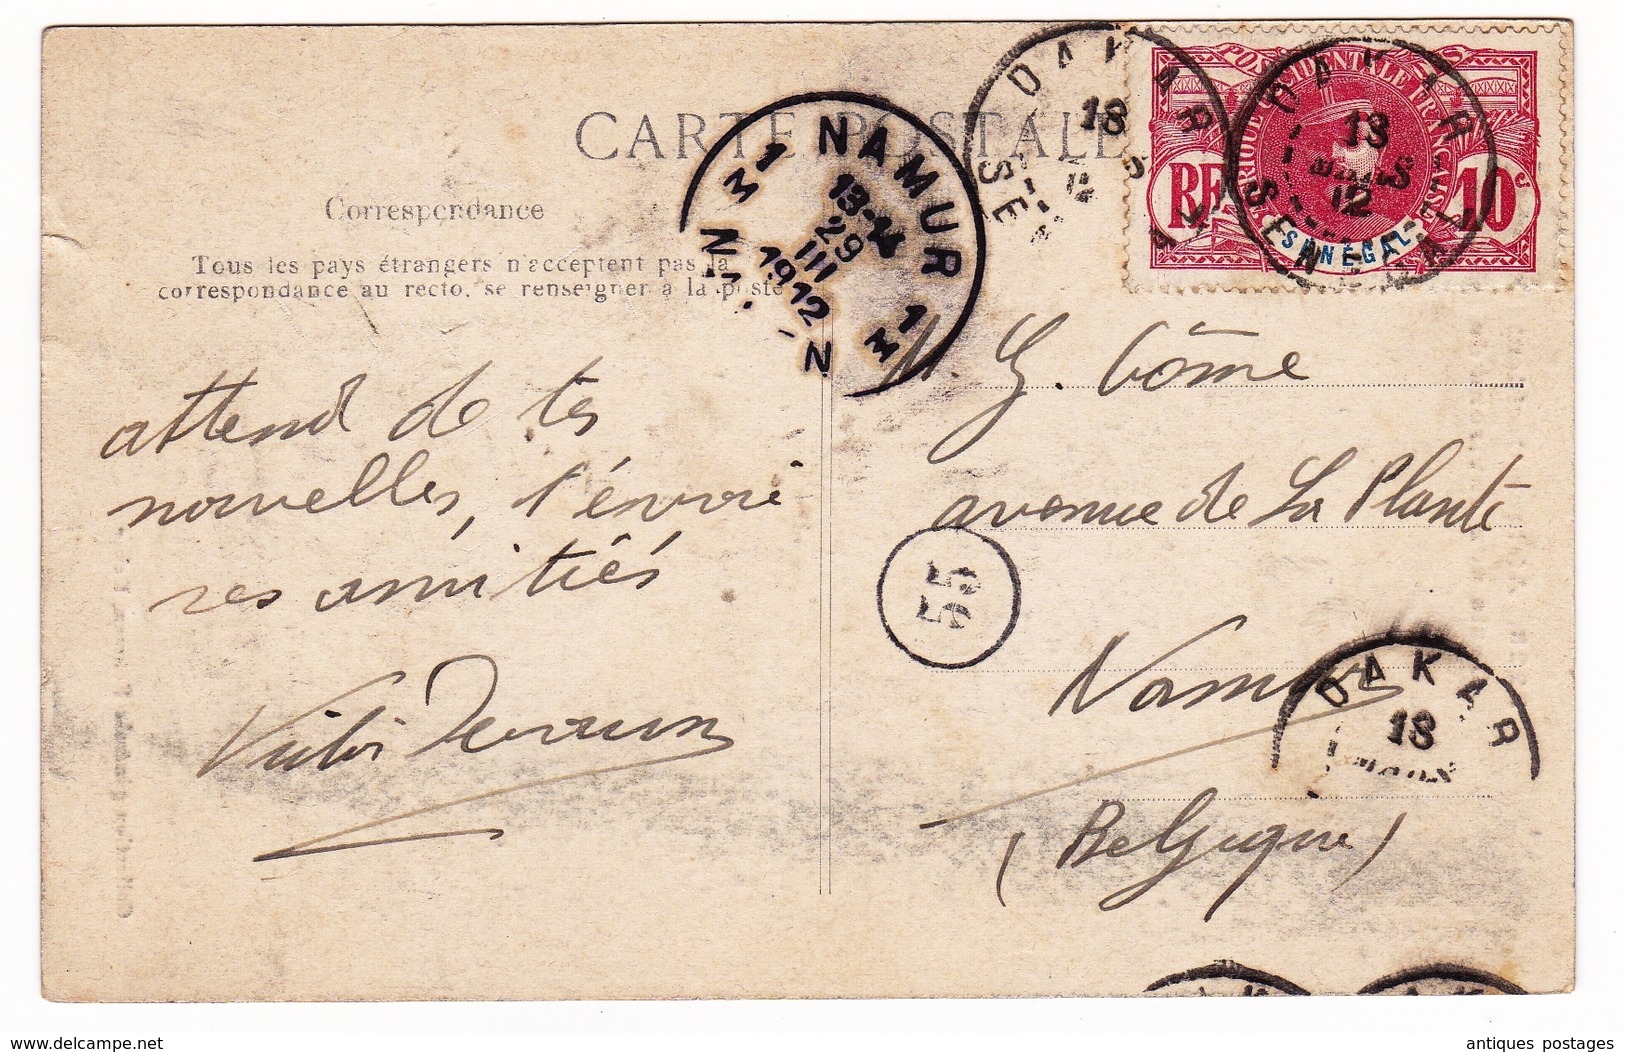 CARTE POSTALE
Correspondance
Tous les pays étrangers n'acceptent pas la
correspondance au recto, se renseigner à la poste
NAMUR 1
13-14
29
III
1912
NAMUR 1
DAKAR
18
SE
DAKAR
18
MARS
12
SENEGAL
AFRIQUE OCCIDENTALE FRANÇAISE
POSTES
RF
10c
SÉNÉGAL
attend de tes
nouvelles, t'envoie
ses amitiés
M. G. Côme
avenue de La Plante
55
Namur
(Belgique)
DAKAR
18
MARS
delcampe.net
antiques postages